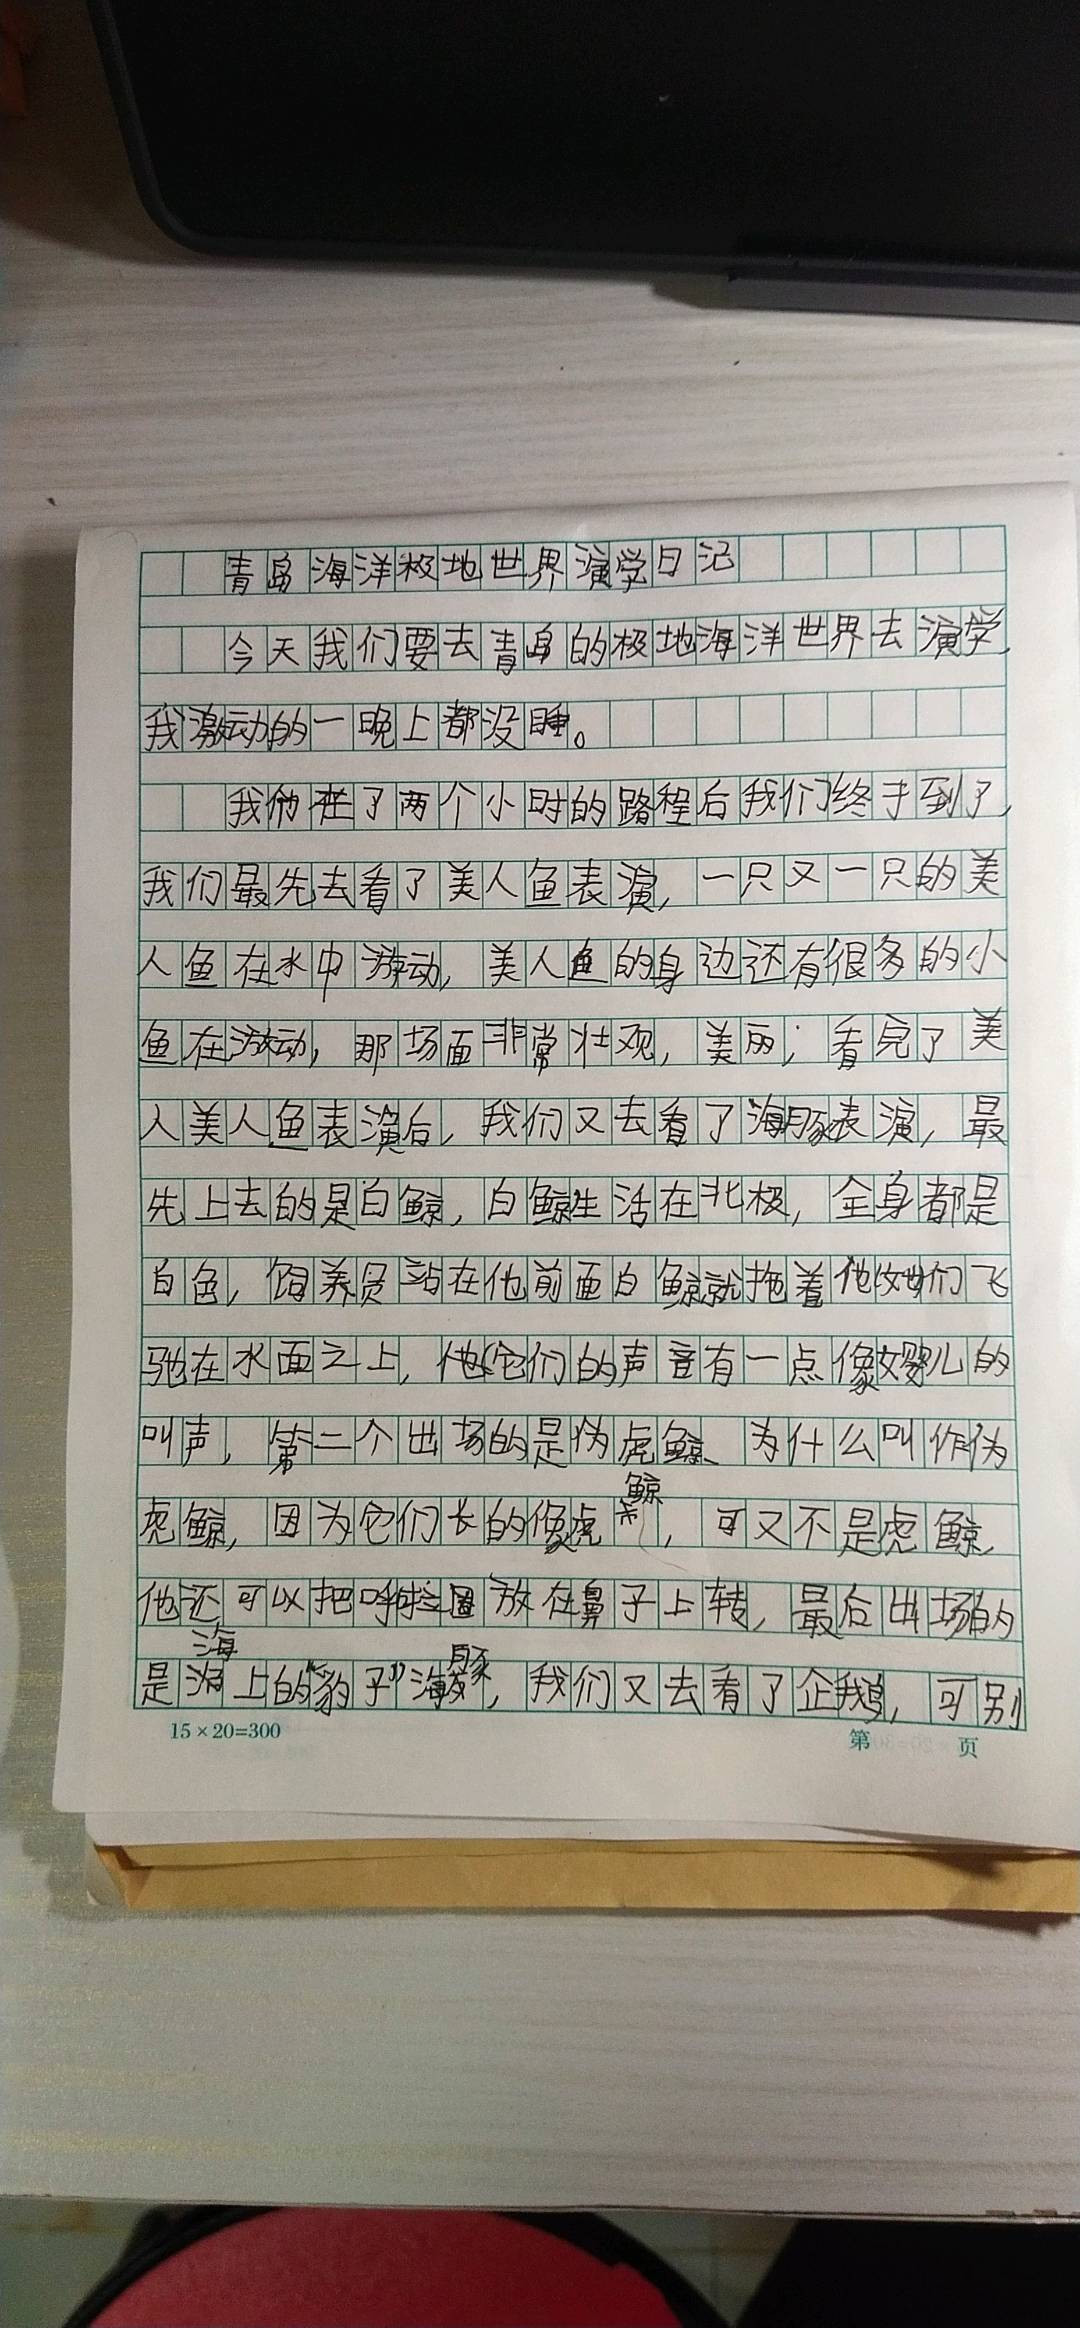 青岛海洋极地世界演学日记
今天我们要去青岛的极地海洋世界去演学,
我激动的一晚上都没睡。
我们在了两个小时的路程后我们终于到了,
我们最先去看了美人鱼表演,一只又一只的美
人鱼在水中游动,美人鱼的身边还有很多的小
鱼在游动,那场面非常壮观,美丽;看完了美
人美人鱼表演后,我们又去看了海豚表演,最
先上去的是白鲸,白鲸生活在北极,全身都是
白色,饲养员站在他前面白鲸就拖着他她们飞
驰在水面之上,他它们的声音有一点像婴儿的
叫声,第二个出场的是伪虎鲸、为什么叫作伪
虎鲸,因为它们长的像虎鲸,可又不是虎鲸,
他还可以把呼啦圈放在鼻子上转,最后出场的
是海上的"豹子"海豚,我们又去看了企鹅,可别
15×20=300
第 页